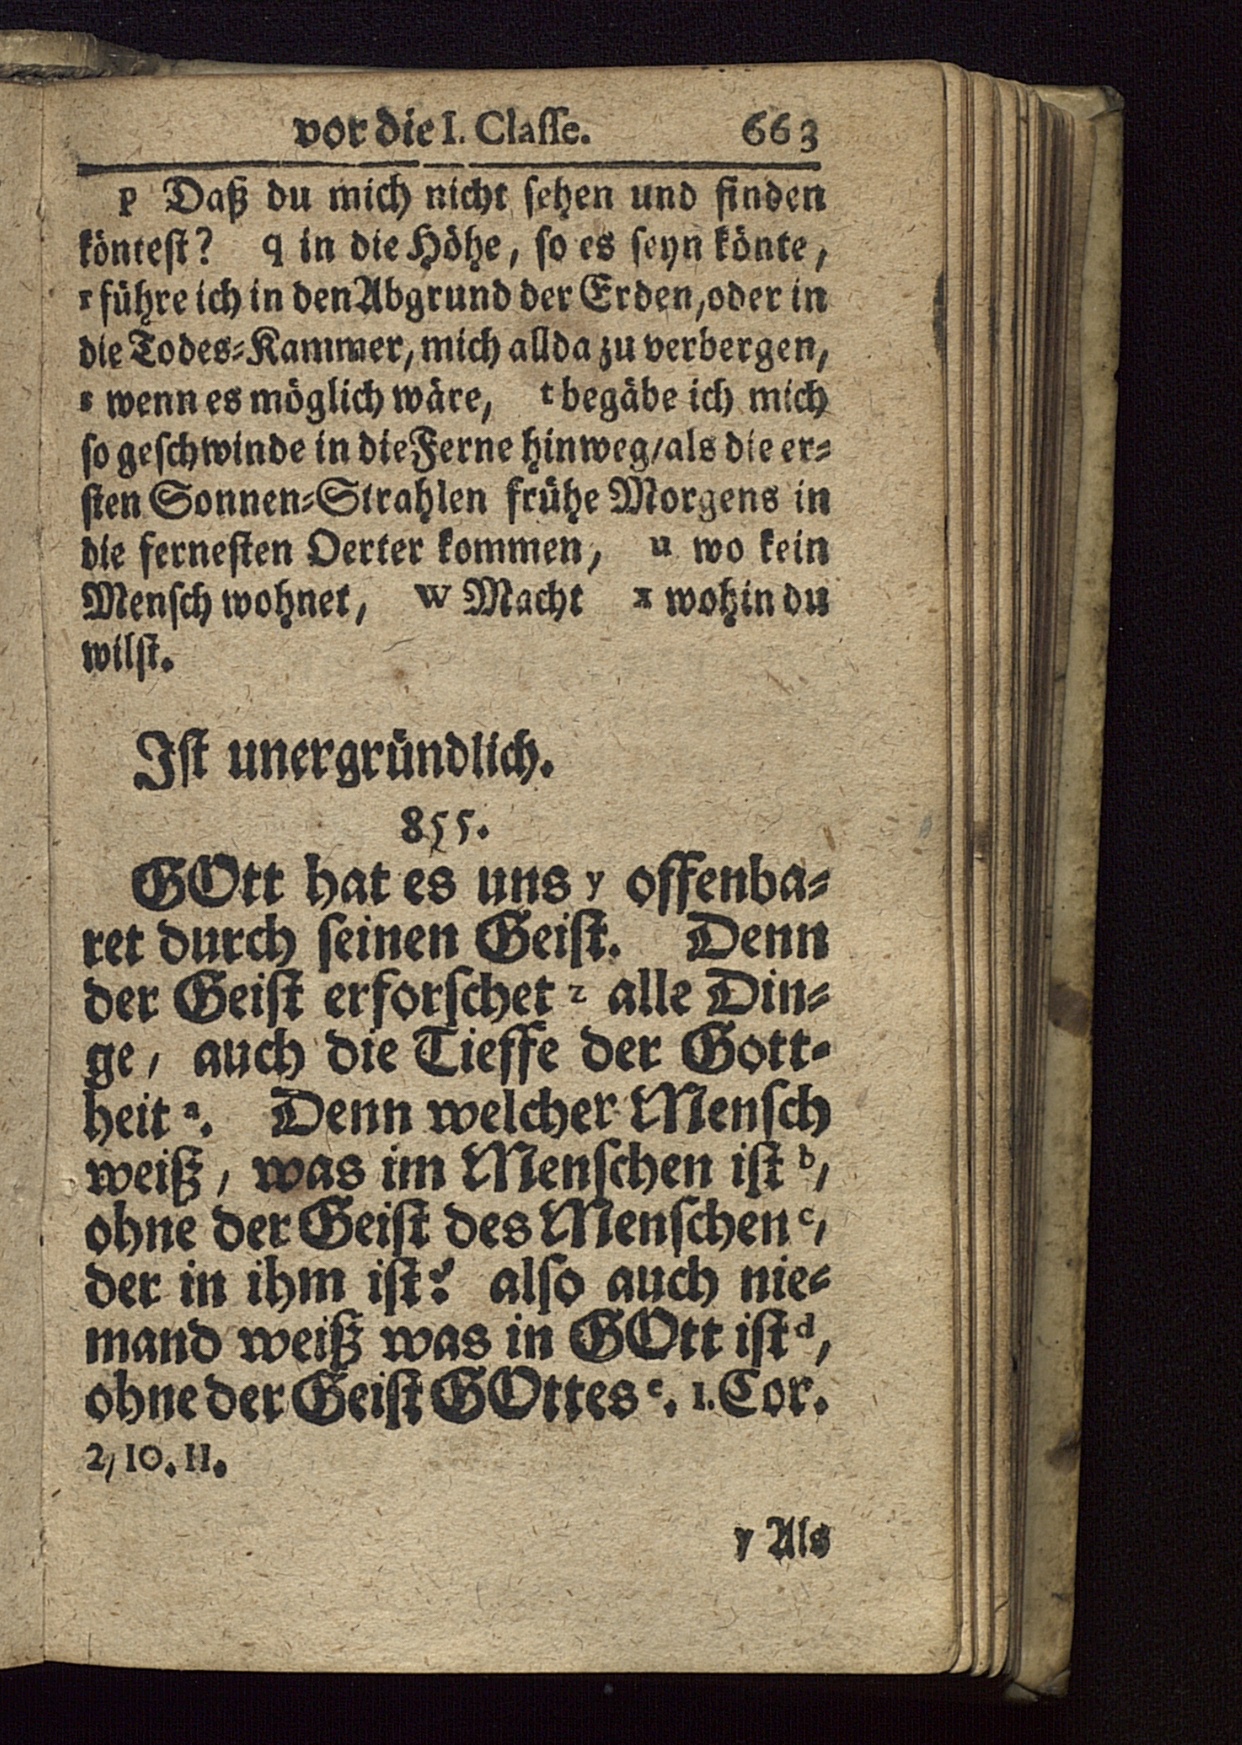 vor die I. Classe. 663
p Daß du mich nicht sehen und finden
köntest? q in die Höhe, so es seyn könte,
r führe ich in den Abgrund der Erden, oder in
die Todes-Kammer, mich allda zu verbergen,
s wenn es möglich wäre, t begäbe ich mich
so geschwinde in die Ferne hinweg/ als die er-
sten Sonnen-Strahlen frühe Morgens in
die fernesten Oerter kommen, u wo kein
Mensch wohnet, w Macht x wohin du
wilst.
Ist unergründlich.
855.
GOtt hat es uns y offenba-
ret durch seinen Geist. Denn
der Geist erforschet z alle Din-
ge, auch die Tieffe der Gott-
heit a. Denn welcher Mensch
weiß, was im Menschen ist b,
ohne der Geist des Menschen c,
der in ihm ist? also auch nie-
mand weiß was in GOtt ist d,
ohne der Geist GOttes e. 1. Cor.
2, 10. 11.
y Als